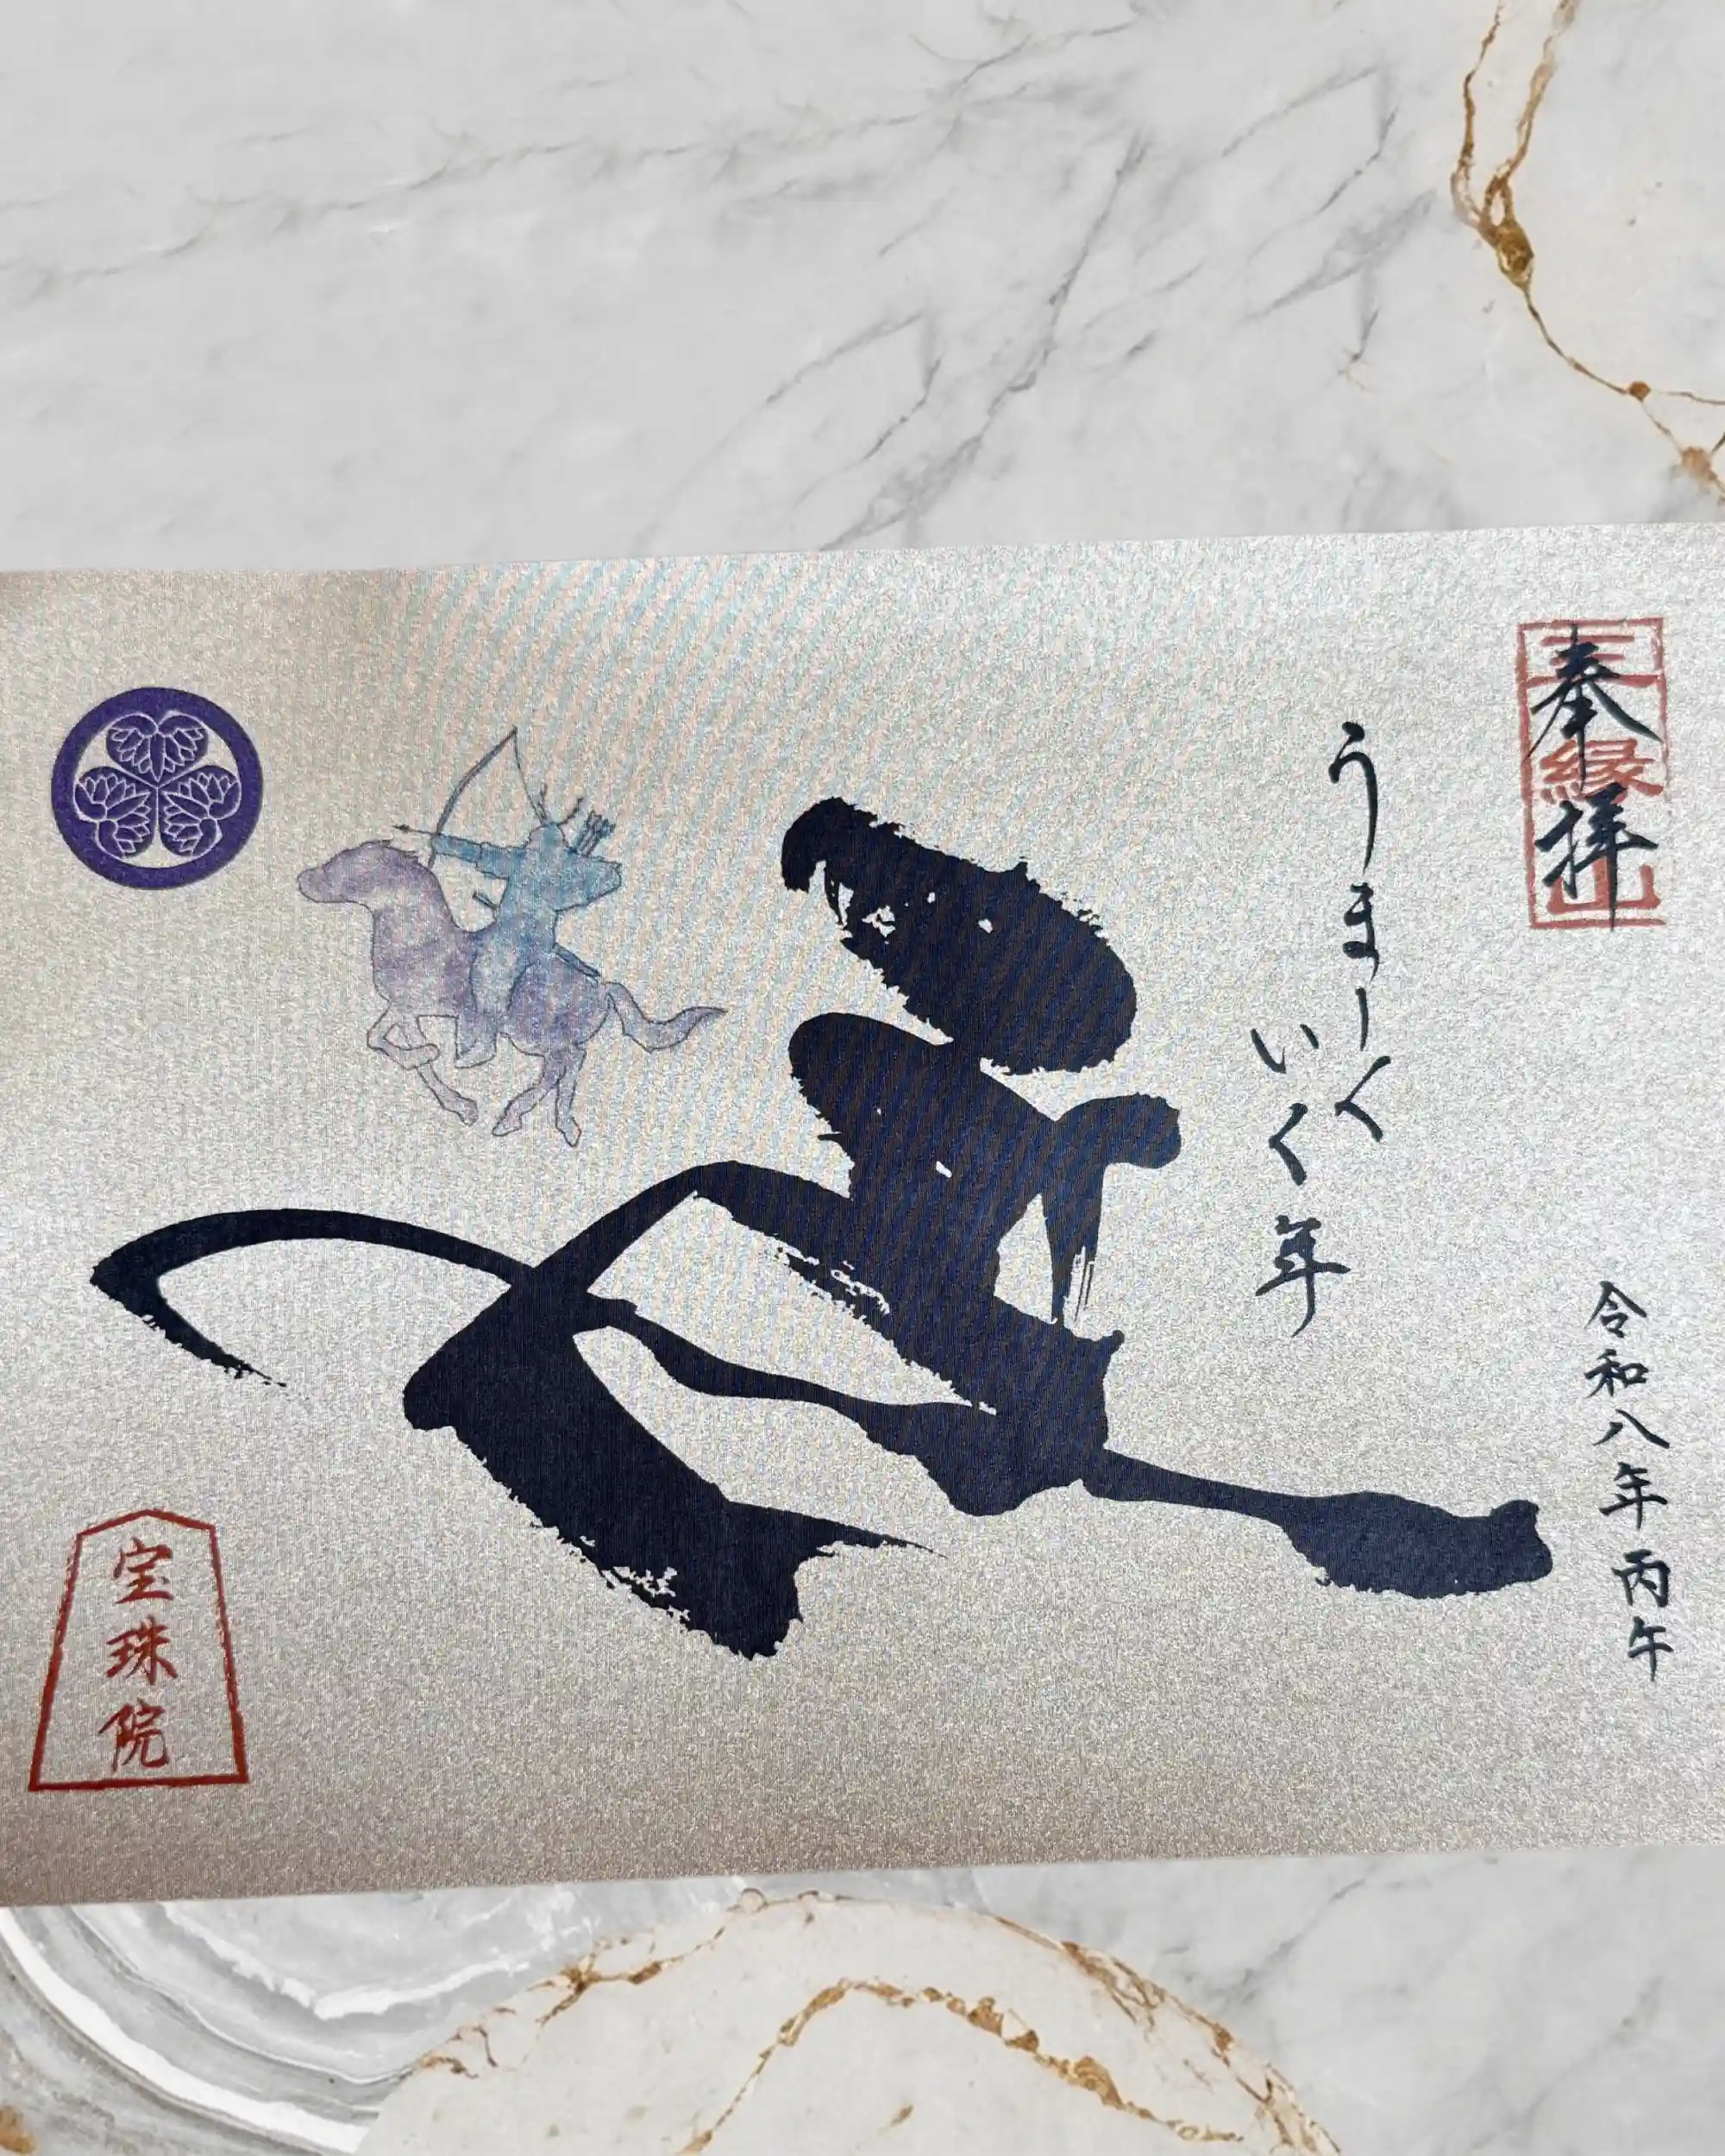 奉拝
三縁山
うまーく
いく年
令和八年丙午
宝珠院